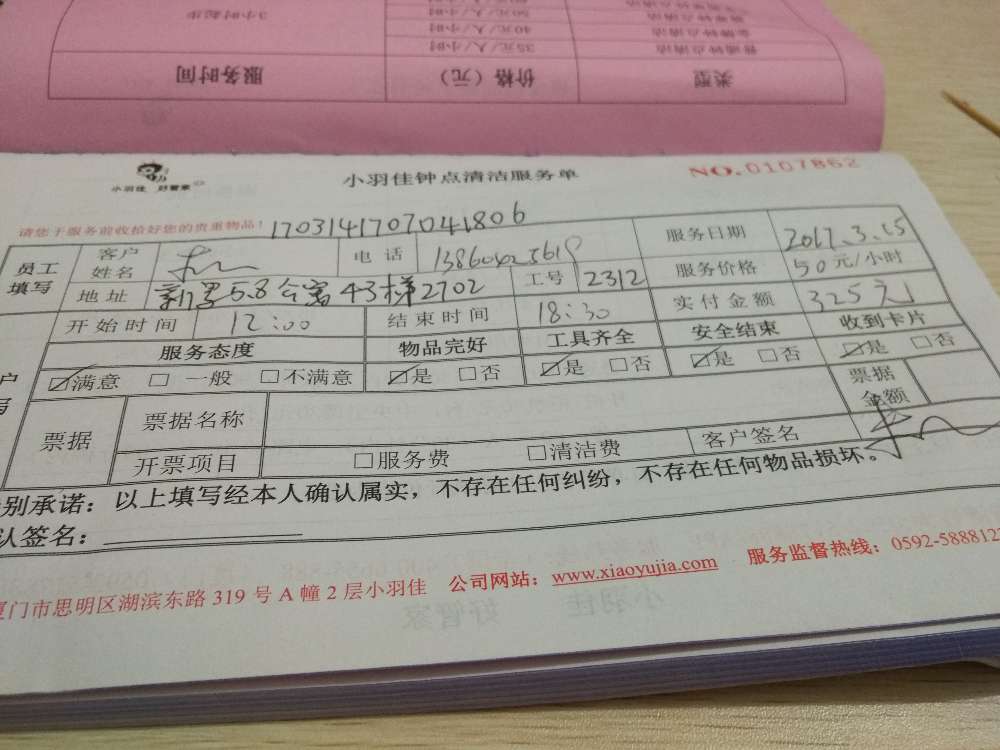 类型 价格（元） 服务时间
普通钟点清洁 35元/人/小时
金牌钟点清洁 40元/人/小时 3小时起步
50元/人/小时
小羽佳 好管家 小羽佳钟点清洁服务单 NO.0107862
请您于服务前收拾好您的贵重物品！ 1703141707041806
员工填写 客户姓名 电话 服务日期 2017.3.15
地址 新罗58公寓43梯2702 工号 2312 服务价格 50元/小时
开始时间 12:00 结束时间 18:30 实付金额 325元
服务态度 物品完好 工具齐全 安全结束 收到卡片
满意 一般 不满意 是 否 是 否 是 否 是 否
票据 票据名称 票据金额
开票项目 服务费 清洁费 客户签名
别承诺：以上填写经本人确认属实，不存在任何纠纷，不存在任何物品损坏。
认签名：
厦门市思明区湖滨东路 319 号 A 幢 2 层小羽佳 公司网站：www.xiaoyujia.com 服务监督热线：0592-588812
小羽佳 好管家